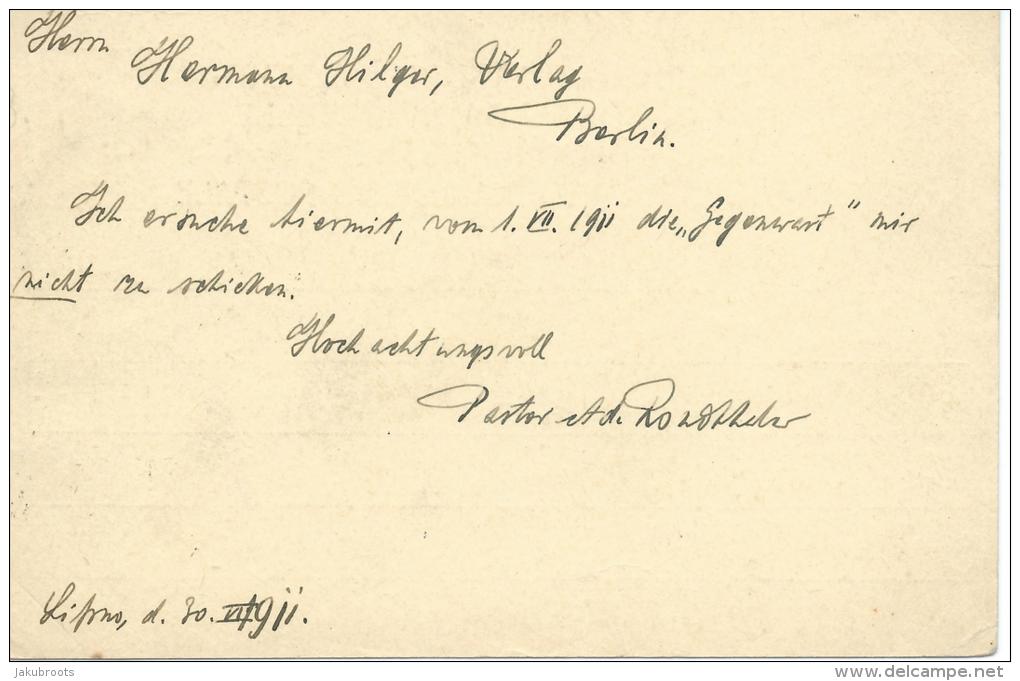 Herrn
Hermann Hilger, Verlag
Berlin.
Ich ersuche hiermit, vom 1. VII. 1911 die „Gegenwart“ mir
nicht zu schicken.
Hochachtungsvoll
Pastor
Lipno, d. 30. 1911.
Jakubroots
www.delcampe.net